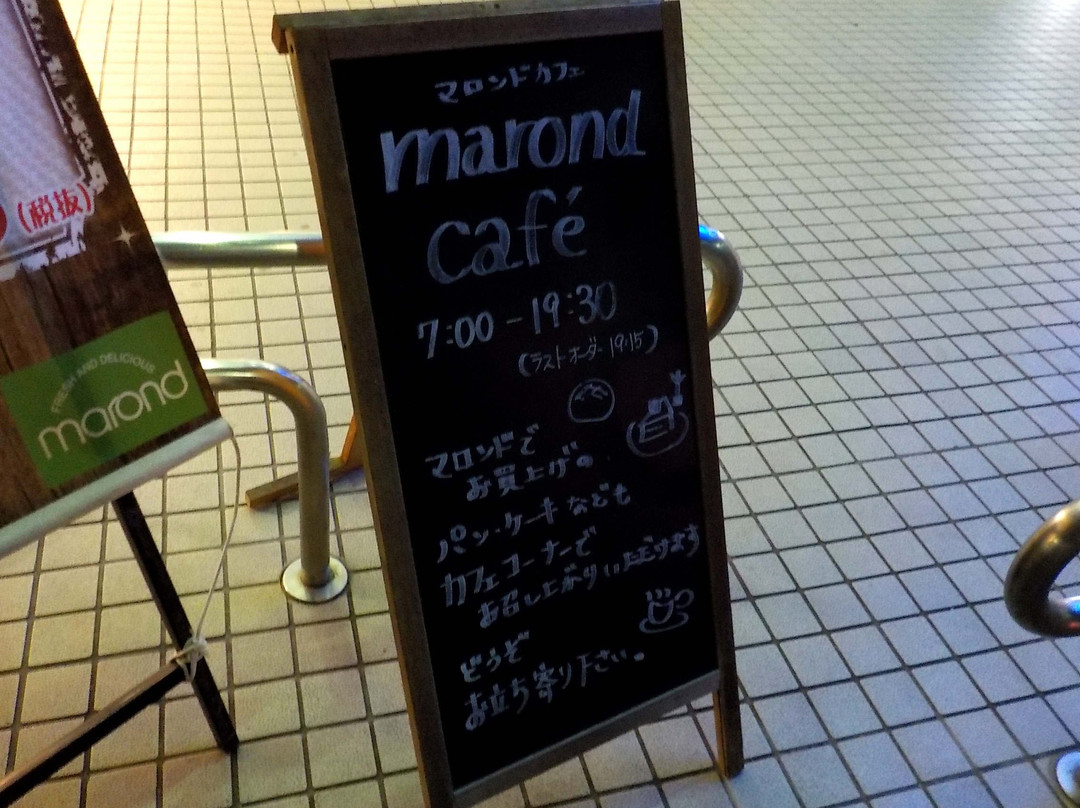 マロンドカフェ
marond
café
7:00-19:30
(ラストオーダー19:15)
マロンドで
お買上げの
パン・ケーキなども
カフェコーナーで
お召し上がりいただけます
どうぞ
お立ち寄り下さい。
(税抜)
FRESH AND DELICIOUS
marond